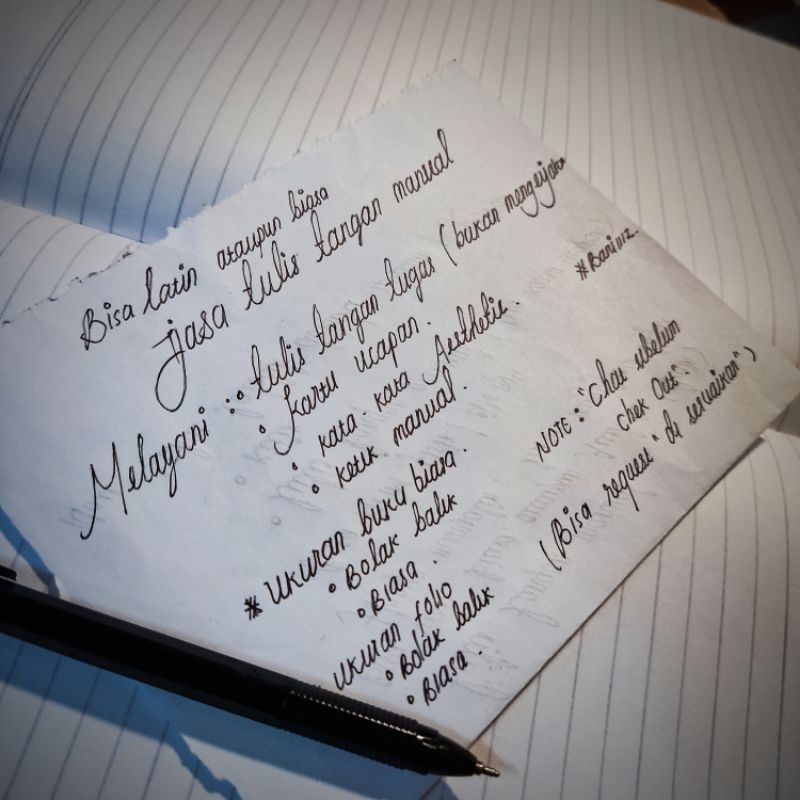 Bisa latin ataupun biasa
jasa tulis tangan manual
Melayani :
• tulis tangan tugas (bukan mengerjakan
• Kartu ucapan.
• kata-kata Aesthetic.
• ketik manual.
* ukuran buku biasa.
• Bolak balik
• Biasa.
ukuran folio
• Bolak balik
• Biasa.
NOTE : "Chat sebelum
Chek Out".
(Bisa request" di sesuaikan")